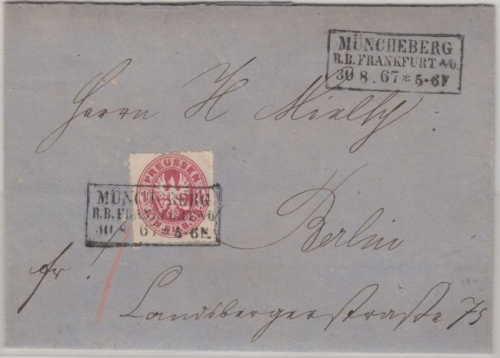 MÜNCHEBERG
R.B. FRANKFURT a/O.
30 8. 67 * 5-6N
Herrn H Mielsch
PREUSSEN
MÜNCHEBERG
R.B. FRANKFURT a/O
30 8 67 * 5-6N.
Berlin
fr.
Landsbergerstraße 75